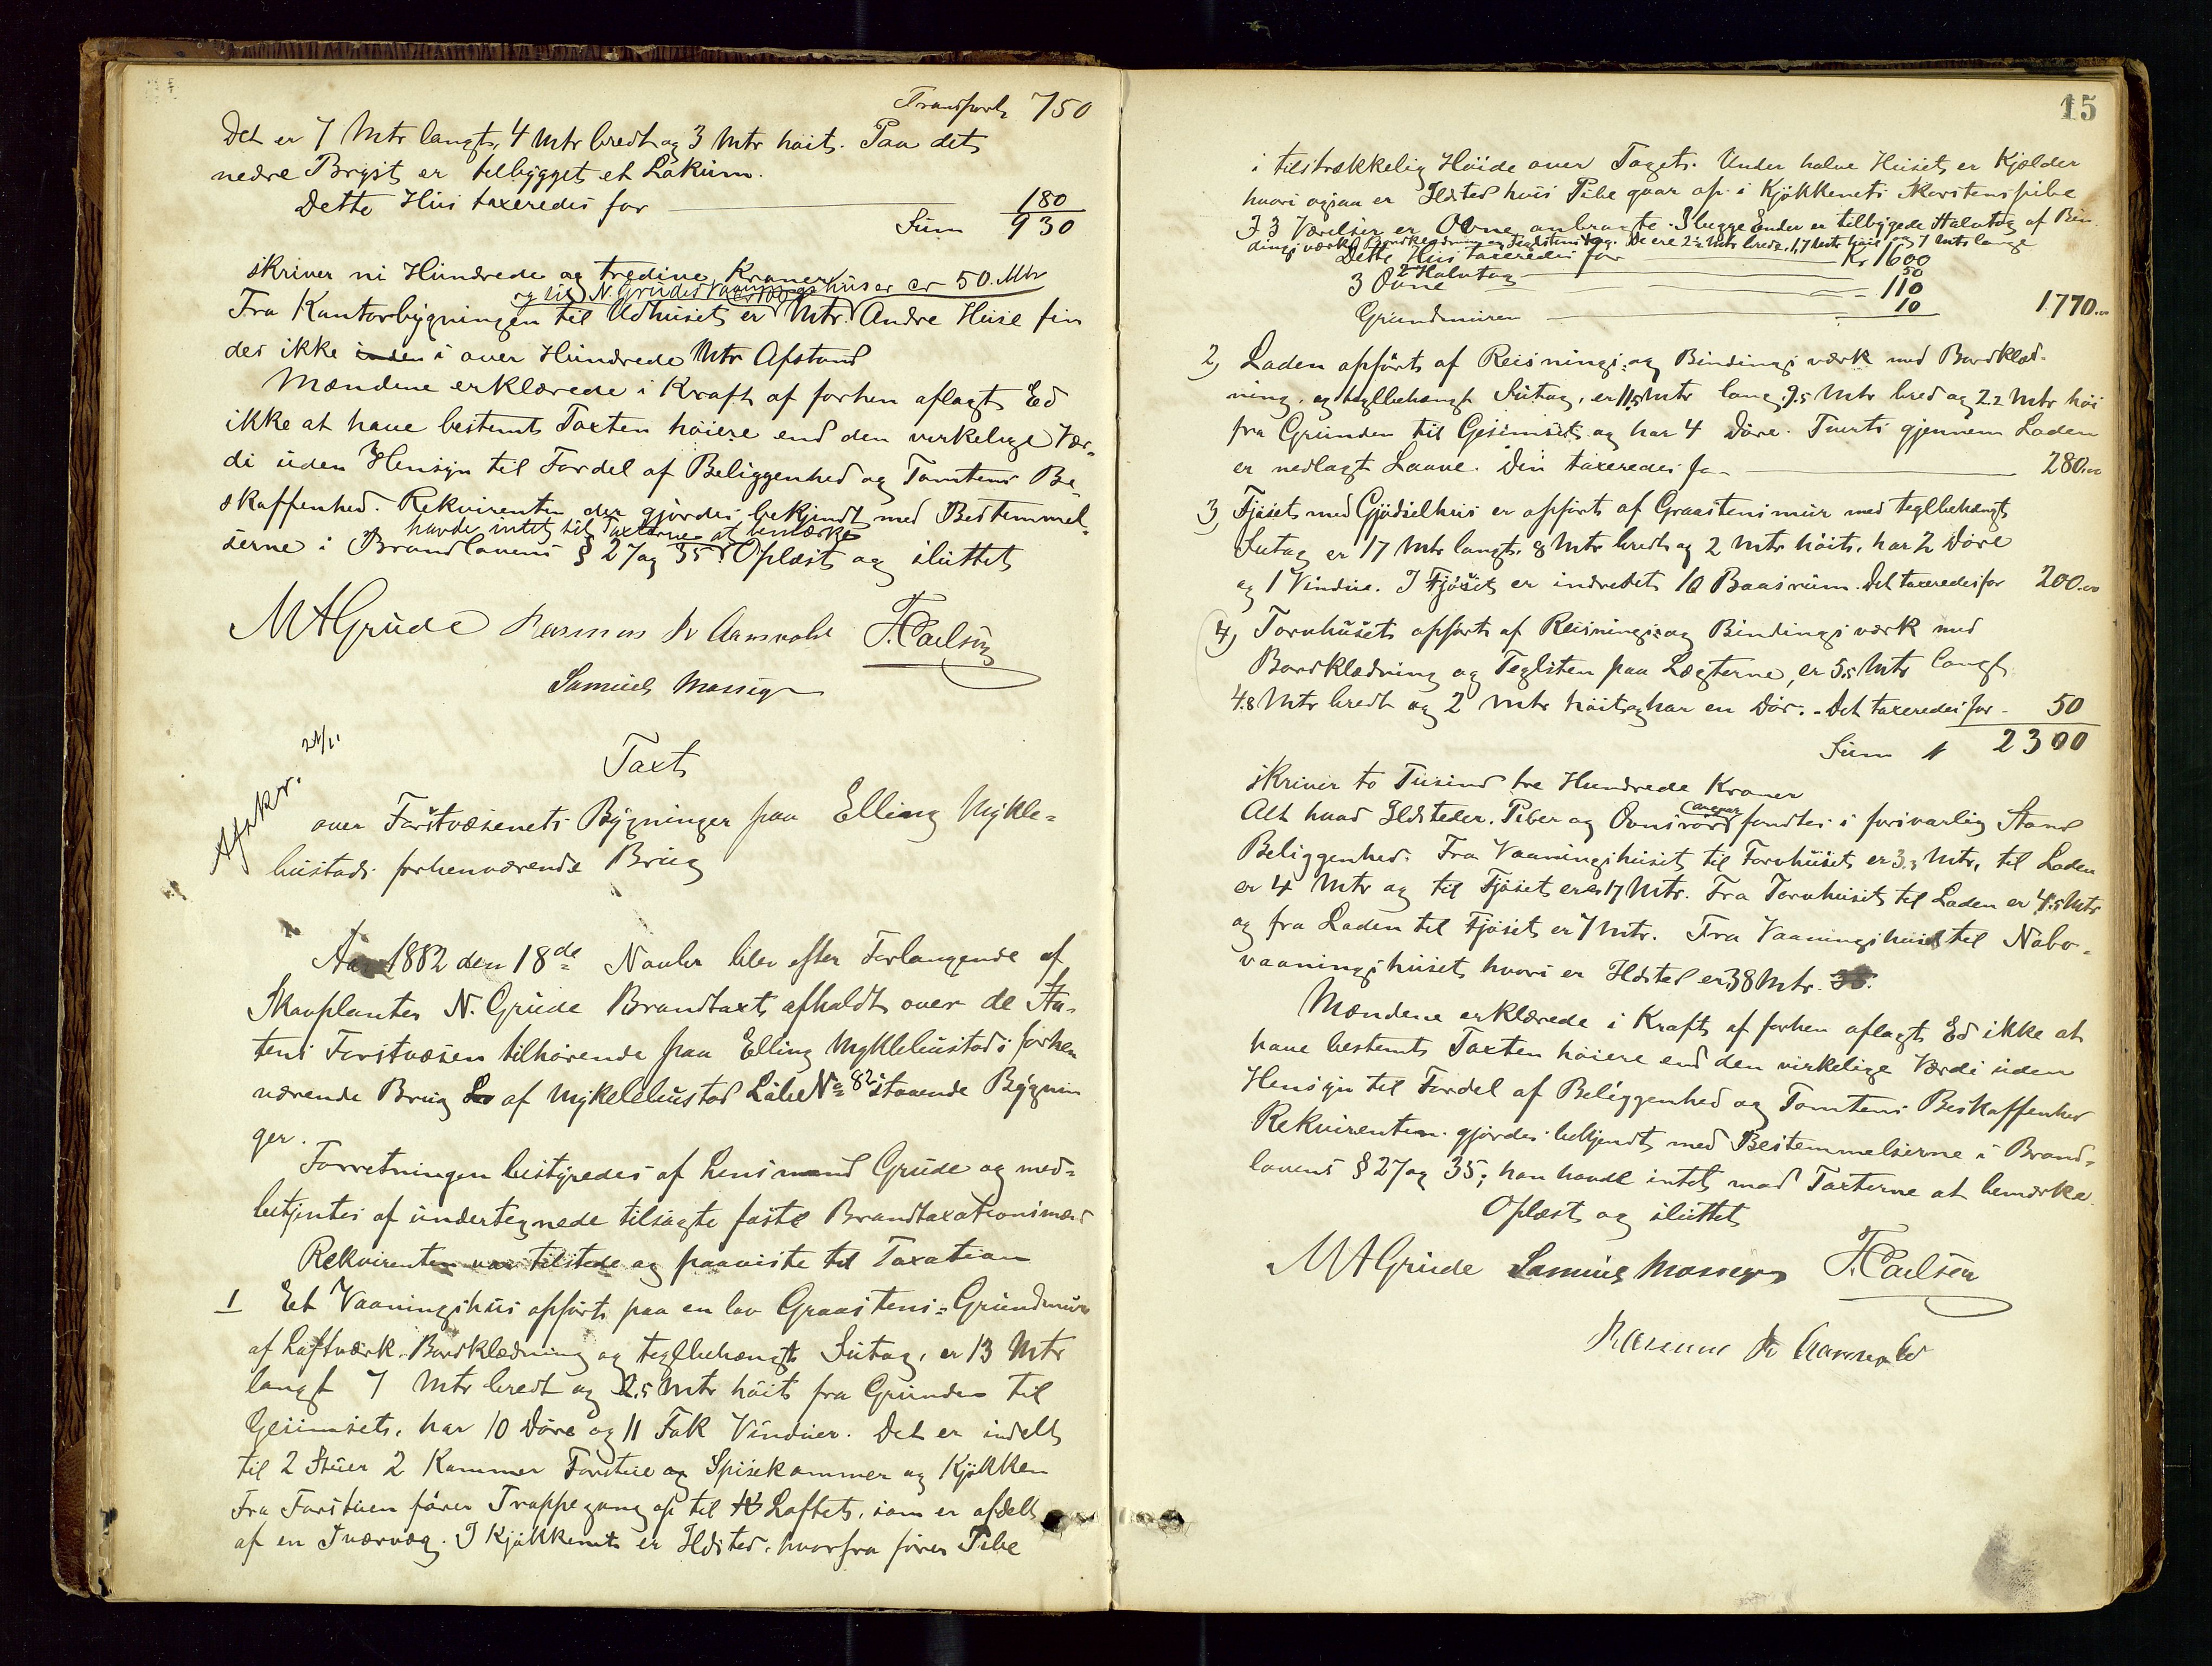 Transport 750
Det er 7 Mtr langt, 4 Mtr bredt og 3 Mtr høit. Paa det
nedre Bryst er tilbygget et Lokum.
Dette Hus taxeredes for 180
Sum 930
skriver ni Hundrede og tredive Kroner
og til N. Grudes Vaaningshus er 50 Mtr
Fra Kontorbygningen til Udhuset er Mtr. Andre Huse fin
des ikke inden i over Hundrede Mtr Afstand
Mændene erklærede i Kraft af forhen aflagt Ed
ikke at have bestemt Taxten høiere end den virkelige Vær-
di uden Hensyn til Fordel af Beliggenhed og Tomtens Be-
skaffenhed. Rekvirenten der gjordes bekjendt med Bestemmel-
havde intet til Taxterne at bemærke
serne i Brandlovens § 27 og 35. Oplæst og sluttet
M A Grude Rasmus Aarsvold T. Carlsen
Samuel Mossige
21/11
Taxt
over Forstvæsenets Bygninger paa Elling Mykle=
bustads forhenværende Brug
Aar 1882 den 18de Novbr blev efter Forlangende af
Skovplanter N. Grude Brandtaxt afholdt over de Sta-
tens Forstvæsen tilhørende paa Elling Myklebustads forhen
værende Brug af Myklebustad Løbe No 82 staaende Bygnin
ger.
Forretningen bestyredes af Lensmand Grude og med=
betjentes af undertegnede tilsagte faste Brandtaxationsmænd
Rekvirenten var tilstede og paaviste til Taxation
1 Et Vaaningshus opført paa en lav Graastens=Grundmur
af Laftværk. Bordklædning og teglbehængt Sutag, er 13 Mtr
langt 7 Mtr bredt og 2.5 Mtr høit fra Grunden til
Gesimset, har 10 Døre og 11 Fak Vinduer. Det er indelt
til 2 Stuer 2 Kammer Forstue og Spisekammer og Kjøkken
Fra Forstuen fører Trappegang op til Loftet, som er afdelt
af en Tværvæg. I Kjøkkenet er Ildsted, hvorfra fører Pibe
15
i tilstrækkelig Høide over Taget. Under halve Huset er Kjælder
hvori ogsaa er Ildsted hvis Pibe gaar op i Kjøkkenets Skorstenspibe
I 3 Værelser er Ovne anbragte. I begge Ender er tilbygede Halvtag af Bin
dingsværk, Bordklædning og Teglstenstag. De ere 2½ Mtr brede, 1,7 Mtr høie og 7 Mtr lange
Dette Hus taxeredes for Kr 1600
2 Halvtag 50
3 Ovne 110
Grundmuren 10 1770.00
2) Laden opført af Reisnings- og Bindingsværk med Bordklæd-
ning, og teglbehængt Sutag, er 11,5 Mtr lang, 9.5 Mtr bred og 2.2 Mtr høi
fra Grunden til Gesimset og har 4 Døre. Tverts gjennem Laden
er nedlagt Laave. Den taxeredes for 280.00
3) Fjøset med Gjødselhus er opført af Graastensmur med teglbehængt
Sutag er 17 Mtr langt, 8 Mtr bredt og 2 Mtr høit, har 2 Døre
og 1 Vindue. I Fjøset er indredet 10 Baasrum. Det taxeredes for 200.00
4) Tørvhuset opført af Reisnings- og Bindingsværk med
Bordklædning og Teglsten paa Lægterne, er 5.5 Mtr langt
4.8 Mtr bredt og 2 Mtr høit og har en Dør. - Det taxeredes for - 50
Sum 2300
skriver to Tusind tre Hundrede Kroner
angaar
Alt hvad Ildsteder, Piber og Ovnsrør fandtes i forsvarlig Stand
Beliggenhed. Fra Vaaningshuset til Tørvhuset er 3.5 Mtr, til Laden
er 4 Mtr og til Fjøset er 17 Mtr. Fra Tørvhuset til Laden er 4.5 Mtr
og fra Laden til Fjøset er 7 Mtr. Fra Vaaningshuset til Nabo-
vaaningshuset hvori er Ildsted er 38 Mtr.
Mændene erklærede i Kraft af forhen aflagt Ed ikke at
have bestemt Taxten høiere end den virkelige Værdi uden
Hensyn til Fordel af Beliggenhed og Tomtens Beskaffenhed
Rekvirenten gjordes bekjendt med Bestemmelserne i Brand-
lovens § 27 og 35; han havde intet mod Taxterne at bemærke.
Oplæst og sluttet
M A Grude Samuel Mossige T. Carlsen
Rasmus Aarsvold